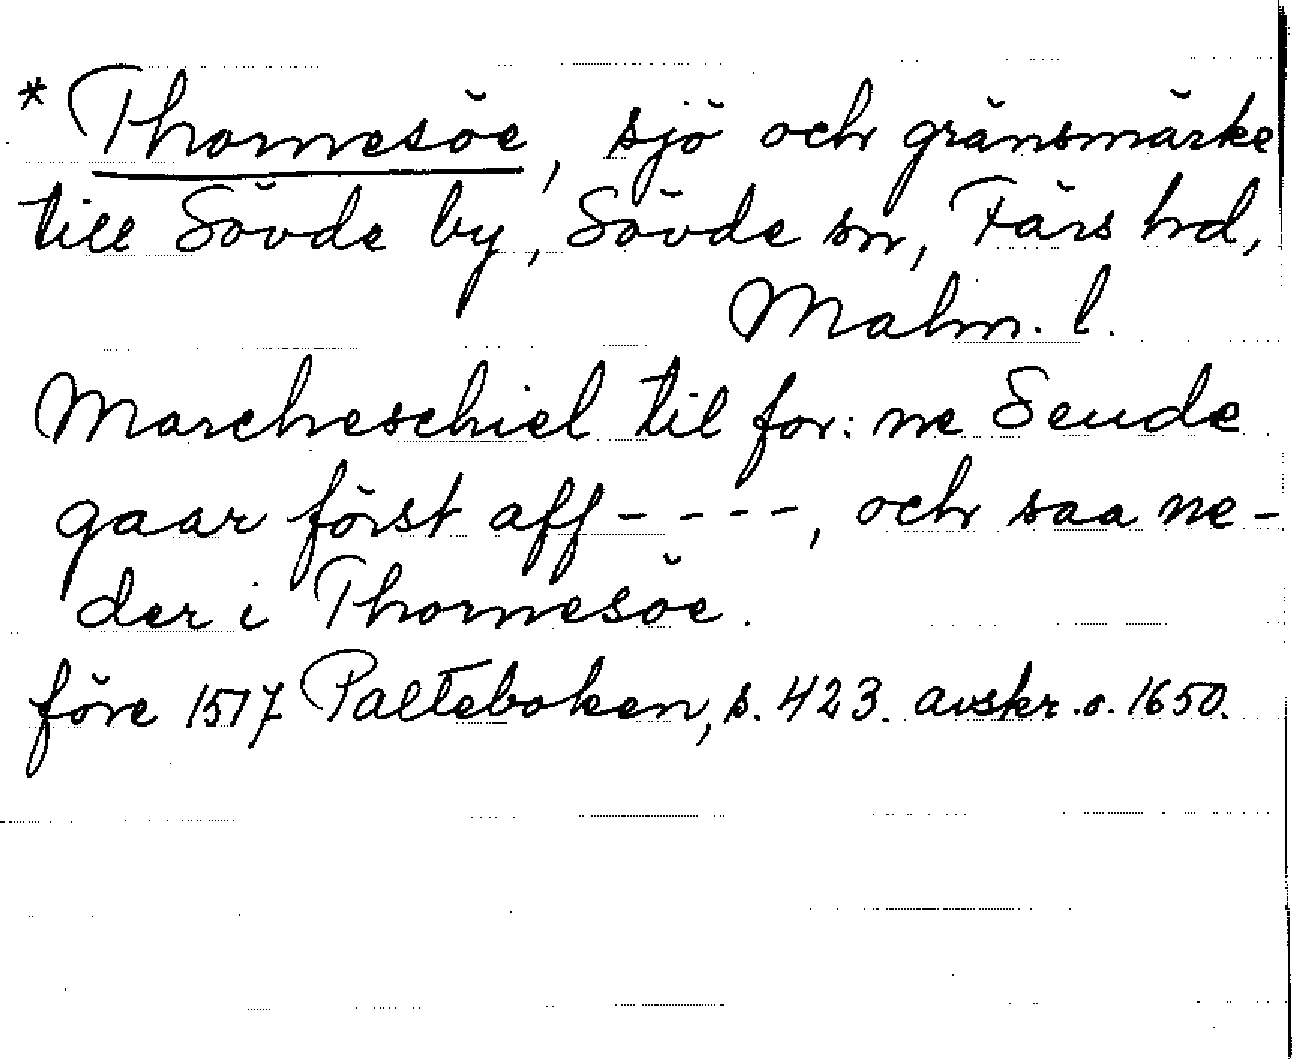 * Thornesöe, sjö och gränsmärke
till Sövde by, Sövde sn, Färs hrd,
Malm. l.
Marcheschiel til for: ne Seude
gaar först aff - - - -, och saa ne-
der i Thornesöe.
före 1517 Palteboken, s. 423. avskr. o. 1650.